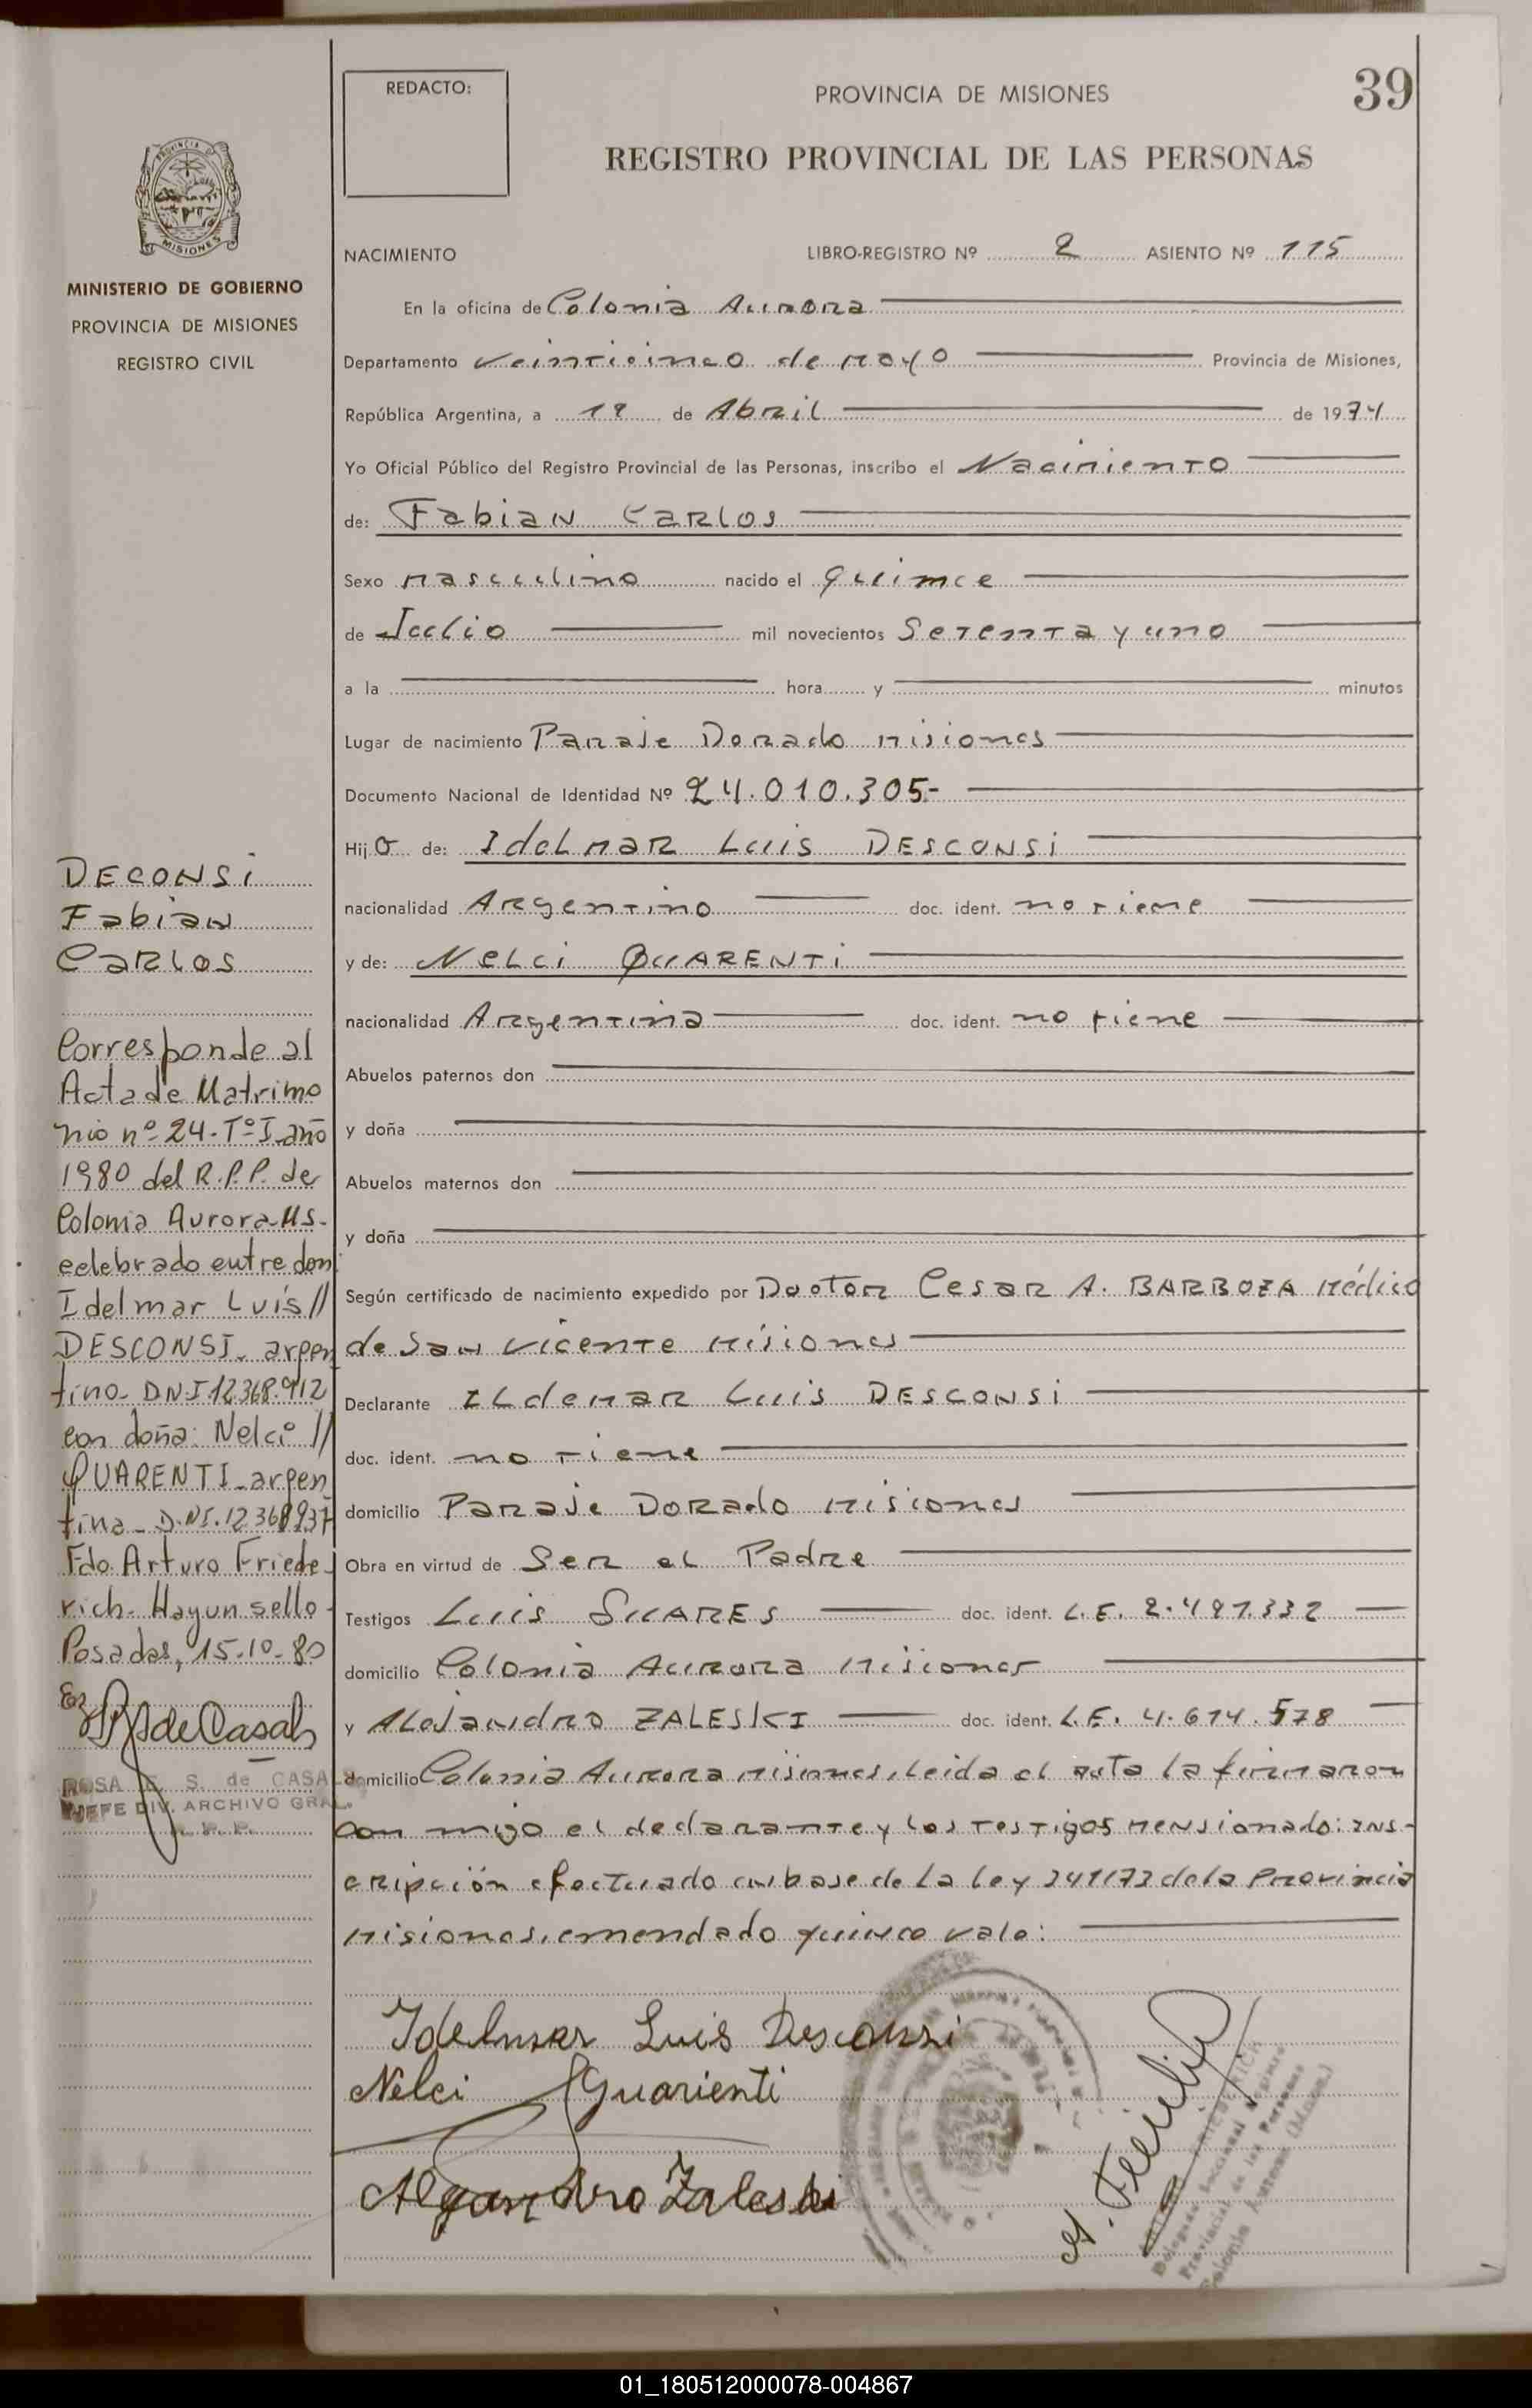 REDACTO:
PROVINCIA DE MISIONES
39
REGISTRO PROVINCIAL DE LAS PERSONAS
PROVINCIA DE
MISIONES
MINISTERIO DE GOBIERNO
PROVINCIA DE MISIONES
REGISTRO CIVIL
NACIMIENTO LIBRO-REGISTRO Nº 2 ASIENTO Nº 115
En la oficina de Colonia Aurora
Departamento Veinticinco de Mayo Provincia de Misiones,
República Argentina, a 18 de Abril de 1974
Yo Oficial Público del Registro Provincial de las Personas, inscribo el Nacimiento
de: Fabian Carlos
Sexo Masculino nacido el Quince
de Julio mil novecientos Setenta y uno
a la hora y minutos
Lugar de nacimiento Paraje Dorado Misiones
Documento Nacional de Identidad Nº 24.010.305-
Hijo de: Idelmar Luis DESCONSi
nacionalidad Argentino doc. ident. no tiene
y de: Nelci QUARENTi
nacionalidad Argentina doc. ident. no tiene
Abuelos paternos don
y doña
Abuelos maternos don
y doña
Según certificado de nacimiento expedido por Doctor Cesar A. BARBOZA Médico
de San Vicente Misiones
Declarante ILdemar Luis DESCONSi
doc. ident. no tiene
domicilio Paraje Dorado Misiones
Obra en virtud de Ser el Padre
Testigos Luis SUARES doc. ident. L.E. 2.487.332
domicilio Colonia Aurora Misiones
y Alejandro ZALESKI doc. ident. L.E. 4.614.578
domicilio Colonia Aurora Misiones, Leida el acta la firmaron
con migo el declarante y los testigos mensionado: ins-
cripción efectuado en base de la Ley 241/73 de la Provincia
Misiones, emendado quince vale:
DECONSi
Fabian
Carlos
Corresponde al
Acta de Matrimo
nio nº 24-Tº I año
1980 del R.P.P. de
Colonia Aurora-Ms-
celebrado entre don
Idelmar Luis //
DESCONSI- argen
tino- D.N.I 12.368.912
con doña: Nelci //
QUARENTI-argen
tina- D.NI.12368937
Fdo. Arturo Friede-
rich- Hay un sello-
Posadas, 15-10-80
de Casals
ROSA E. S. de CASALS
JEFE DIV. ARCHIVO GRAL.
R. P. P.
Idelmar Luis Desconsi
Nelci Guarienti
Alejandro Zaleski
Delegado Seccional Registro
Provincial de las Personas
Colonia Aurora (Misiones)
01_180512000078-004867